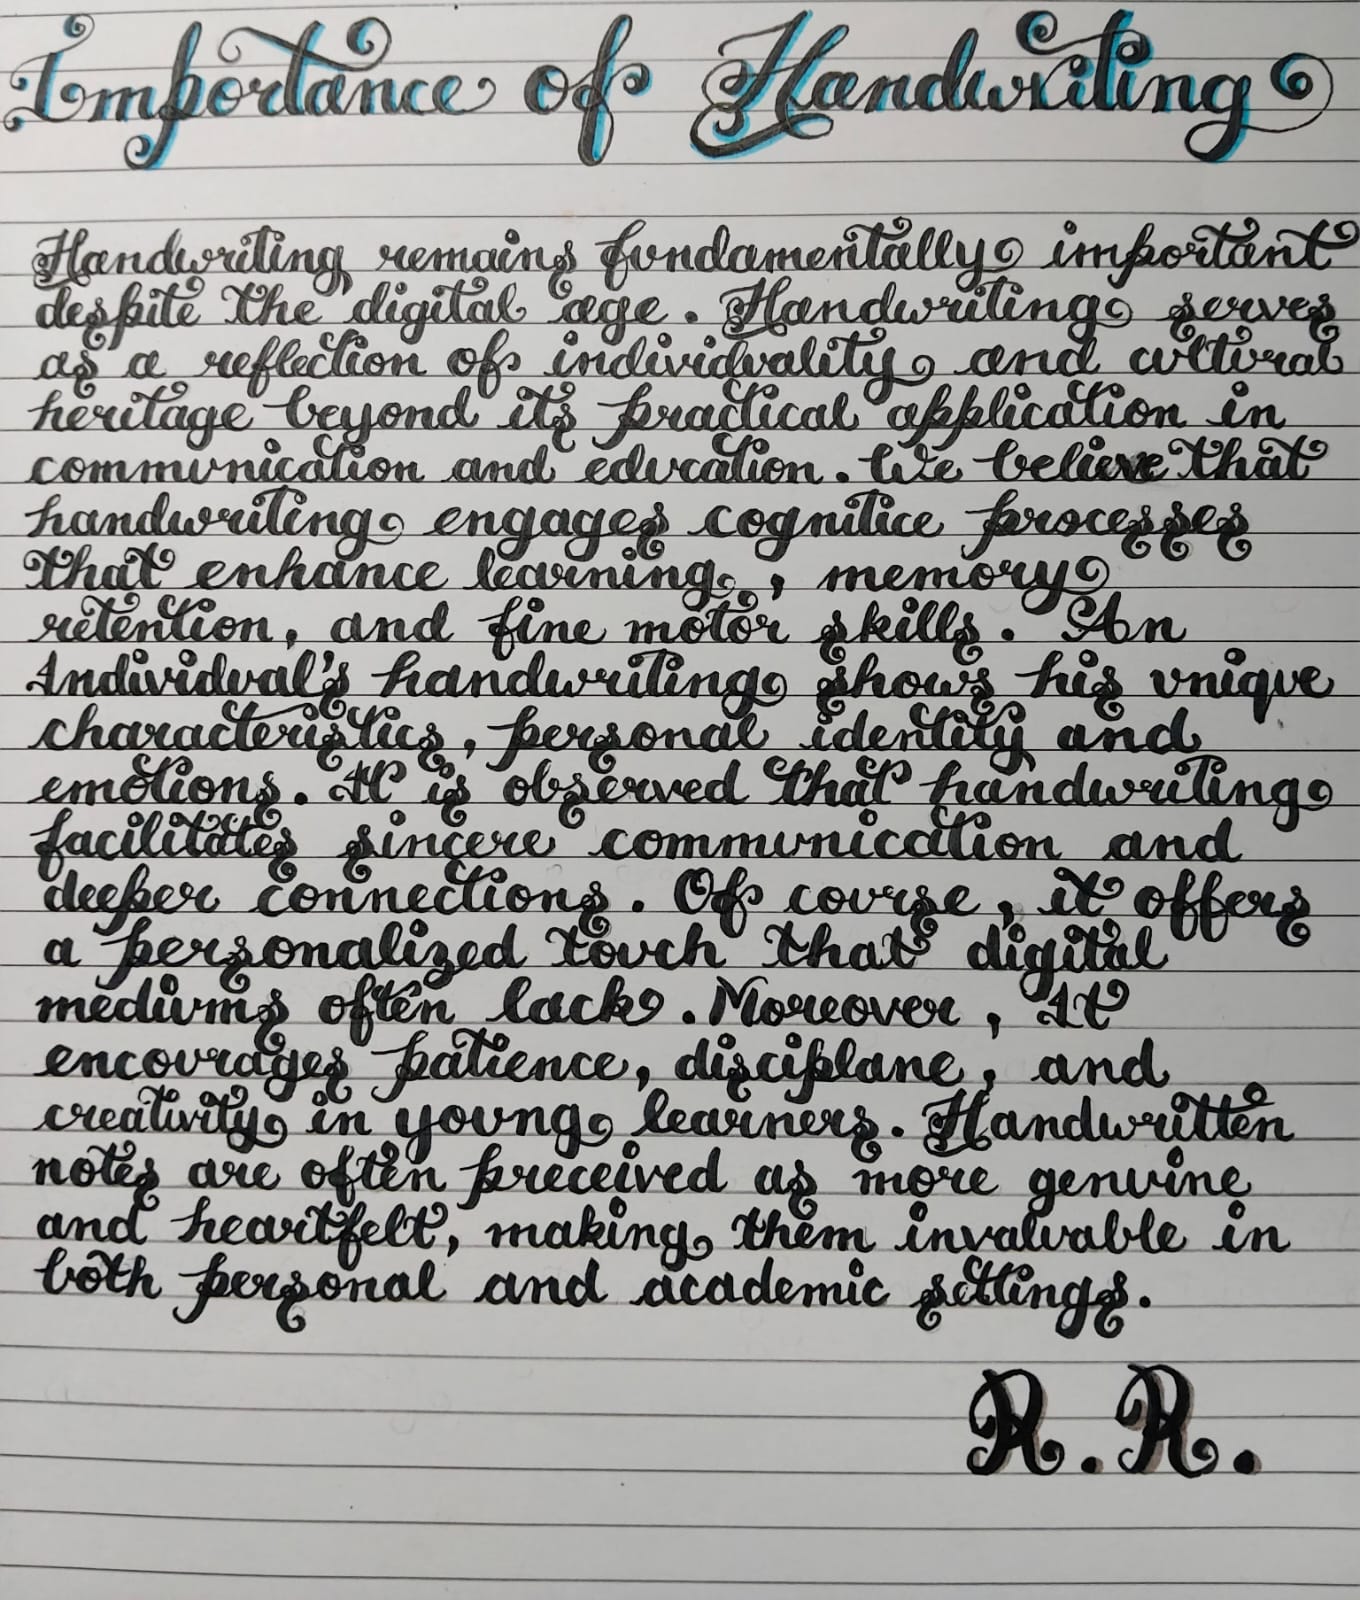 Importance of Handwriting
Handwriting remains fundamentally important
despite the digital age. Handwriting serves
as a reflection of individuality and cultural
heritage beyond its practical application in
communication and education. We believe that
handwriting engages cognitice processes
that enhance learning, memory
retention, and fine motor skills. An
Individual's handwriting shows his unique
characteristics, personal identity and
emotions. It is observed that handwriting
facilitates sincere communication and
deeper connections. Of course, it offers
a personalized touch that digital
mediums often lack. Moreover, It
encourages patience, disciplane, and
creativity in young learners. Handwritten
notes are often preceived as more genuine
and heartfelt, making them invaluable in
both personal and academic settings.
R.R.